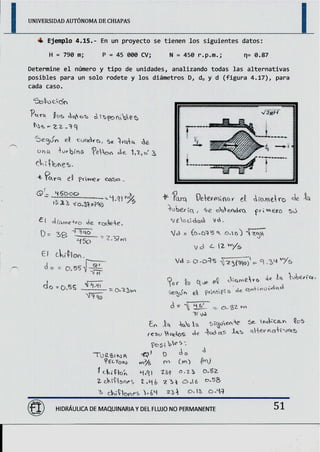 UNIVERSIDAD AUTÓNOMA DE CHIAPAS
Ejemplo 4.15.- En un proyecto se tienen los siguientes datos:
H = 790 m; P = 45 000 CV; N = 450 r.p.m.; η= 0.87
Determine el número y tipo de unidades, analizando todas las alternativas
posibles para un solo rodete y los diámetros D, d₀ y d (figura 4.17), para
cada caso.
Solución
Para los datos disponibles
Ns = 22.79
Según el cuadro, se trata de
una turbina Pelton de 1,2, ó 3
chiflones.
* Para el primer caso.
Q = 45000 = 4.91 m³/s
El diametro de rodete.
D = 38 √790 / 450 = 2.37m
El chiflon.
d₀ = 0.55
d₀ = 0.55 √4.91 / √790 = 0.23m
* Para Determinar el diametro de la
tuberia, se obtendra primero su
velocidad Vd.
Vd = (0.075 a 0.10) √2gH
Vd < 12 m/s
Vd = 0.075 √2g(790) = 9.34 m/s
Por lo que el diametro de la tuberia.
Según el principio de continuidad
d = = 0.82 m
En la tabla siguiente se indican los
resultados de todas las alternativas
posibles:
TURBINA Q' D d₀ d
PELTON m³/s m (m) (m)
1 chiflón 4.91 237 0.23 0.82
2 chiflones 2.46 237 0.16 0.58
3 chiflones 1.64 237 0.13 0.47
HIDRÁULICA DE MAQUINARIA Y DEL FLUJO NO PERMANENTE 51